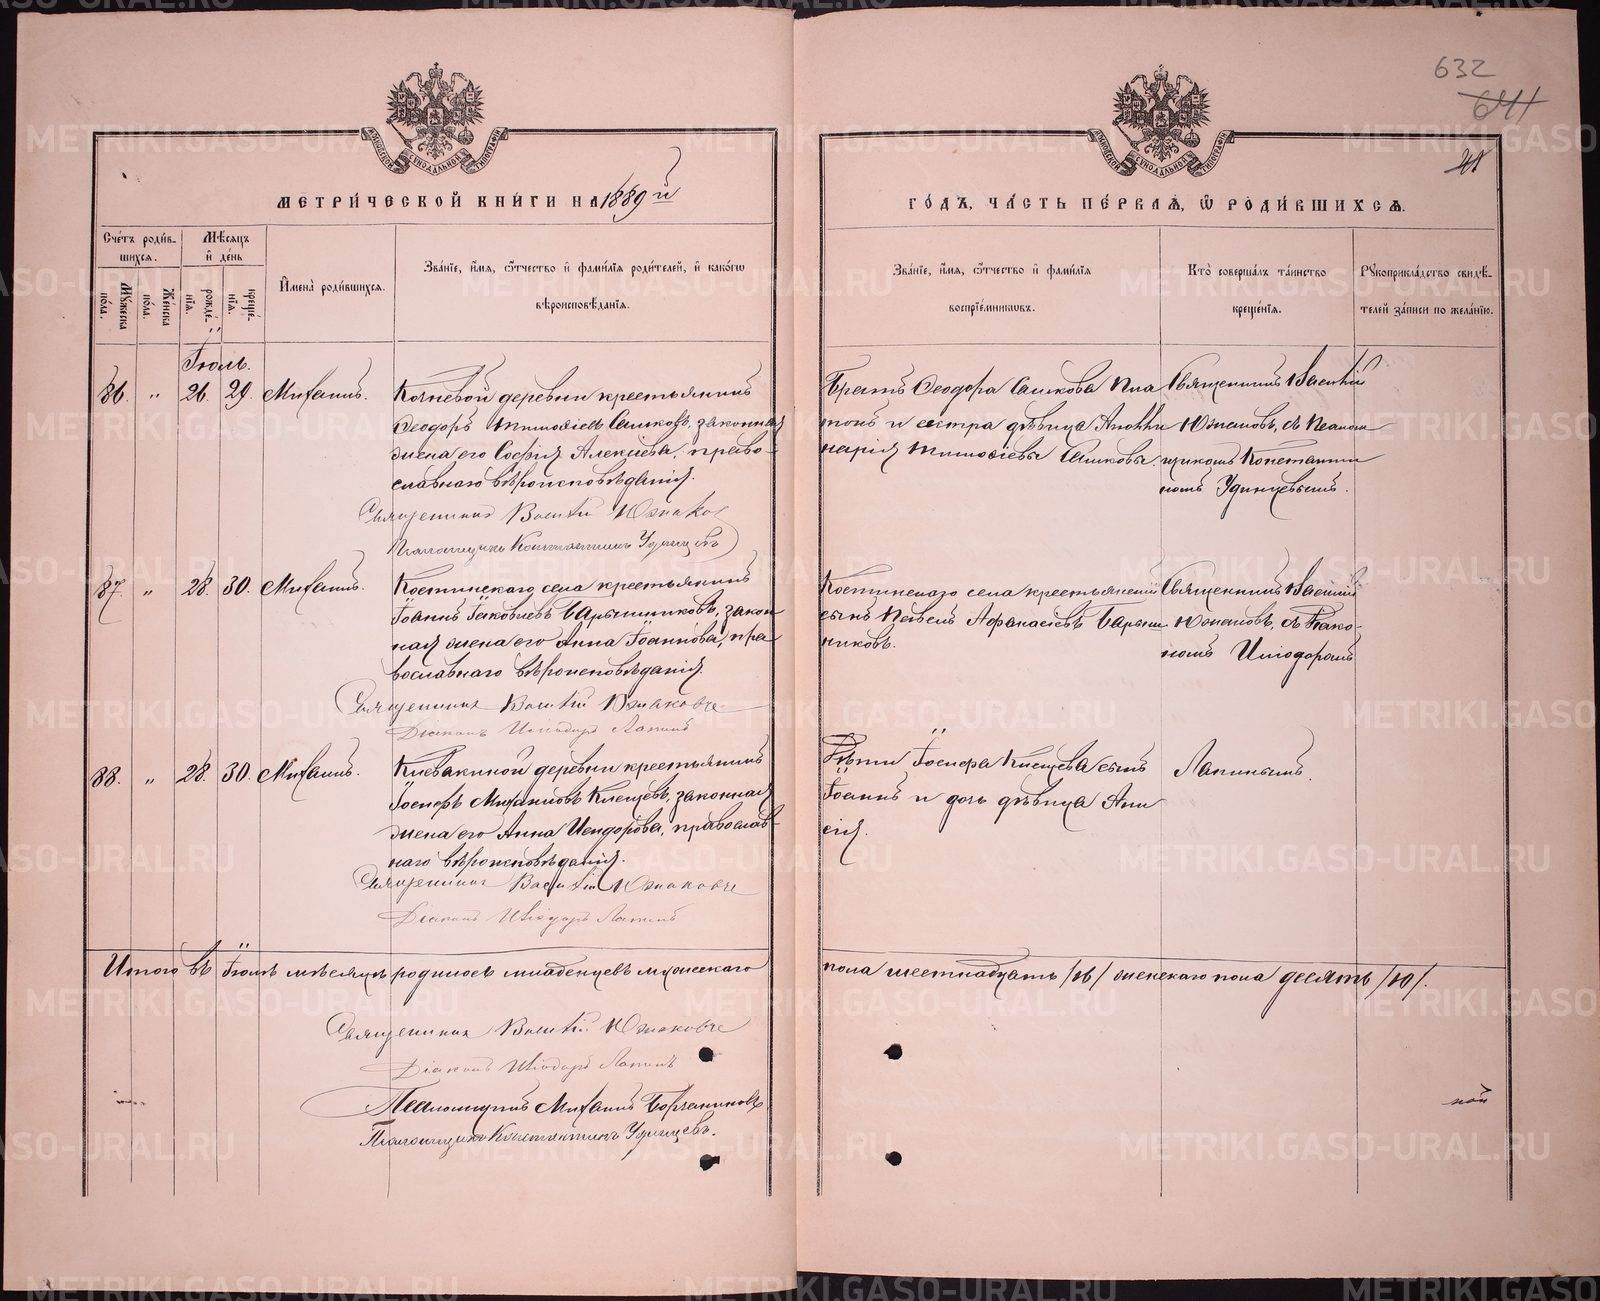 632
641
МЕТРИ́ЧЕСКОЙ КНИ́ГИ НА 1889й
ГО́ДЪ, ЧА́СТЬ ПЕ́РВАѦ, Ѡ РОДИ́ВШИХСѦ.
Сче́тъ роди́в-
шихсѧ.
Мѣ́сѧцъ
и де́нь
Мꙋ́жеска
по́ла.
Же́нска
по́ла.
рожде́-
нїѧ.
креще́-
нїѧ.
Имена̀ роди́вшихсѧ.
Зва́нїе, и́мѧ, ѻ́тчество и фами́лїѧ роди́телей, и како́гѡ
вѣроисповѣ́данїѧ.
Зва́нїе, и́мѧ, ѻ́тчество и фами́лїѧ
воспрїе́мникѡвъ.
Кто̀ соверша́лъ та́инство
креще́нїѧ.
Рꙋкоприкла́дство свидѣ́-
телей за́писи по жела́нїю.
Іюль.
86. " 26. 29. Михаилъ.
Кочневой деревни крестьянинъ
Ѳеодоръ Тимоѳіевъ Сашковъ, законная
жена его Софія Алексіева, право-
славнаго вѣроисповѣданія.
Священникъ Василій Южаков
Псаломщикъ Константинъ Удинцевъ
Братъ Ѳеодора Сашкова Пла
тонъ и сестра дѣвица Аполли
нарія Тимоѳіевы Сашковы.
Священникъ Василій
Южаковъ, съ Псалом
щикомъ Константи
номъ Удинцевымъ.
87. " 28. 30. Михаилъ.
Костинскаго села крестьянинъ
Іоаннъ Іаковлевъ Барышниковъ, закон
ная жена его Анна Іоаннова, пра
вославнаго вѣроисповѣданія.
Священникъ Василій Южаковъ
Діаконъ Иліодоръ Лапинъ
Костинскаго села крестьянскій
сынъ Павелъ Аѳанасіевъ Барыш
никовъ.
Священникъ Василій
Южаковъ, съ Діако-
номъ Иліодоромъ
88. " 28. 30. Михаилъ.
деревни крестьянинъ
Іосифъ Михаиловъ Клещевъ, законная
жена его Анна Исидорова, православ-
наго вѣроисповѣданія.
Священникъ Василій Южаковъ
Діаконъ Иліодоръ Лапинъ
Дѣти Іосифа Клещева сынъ
Іоаннъ и дочь дѣвица Ани
сія.
Лапинымъ.
Итого въ Іюлѣ мѣсяцѣ родилось младенцевъ мужескаго
пола шестнадцать /16/ женскаго пола десять /10/.
Священникъ Василій Южаковъ
Діаконъ Иліодоръ Лапинъ
Псаломщикъ Михаилъ
Псаломщикъ Константинъ Удинцевъ.
METRIKI.GASO-URAL.RU